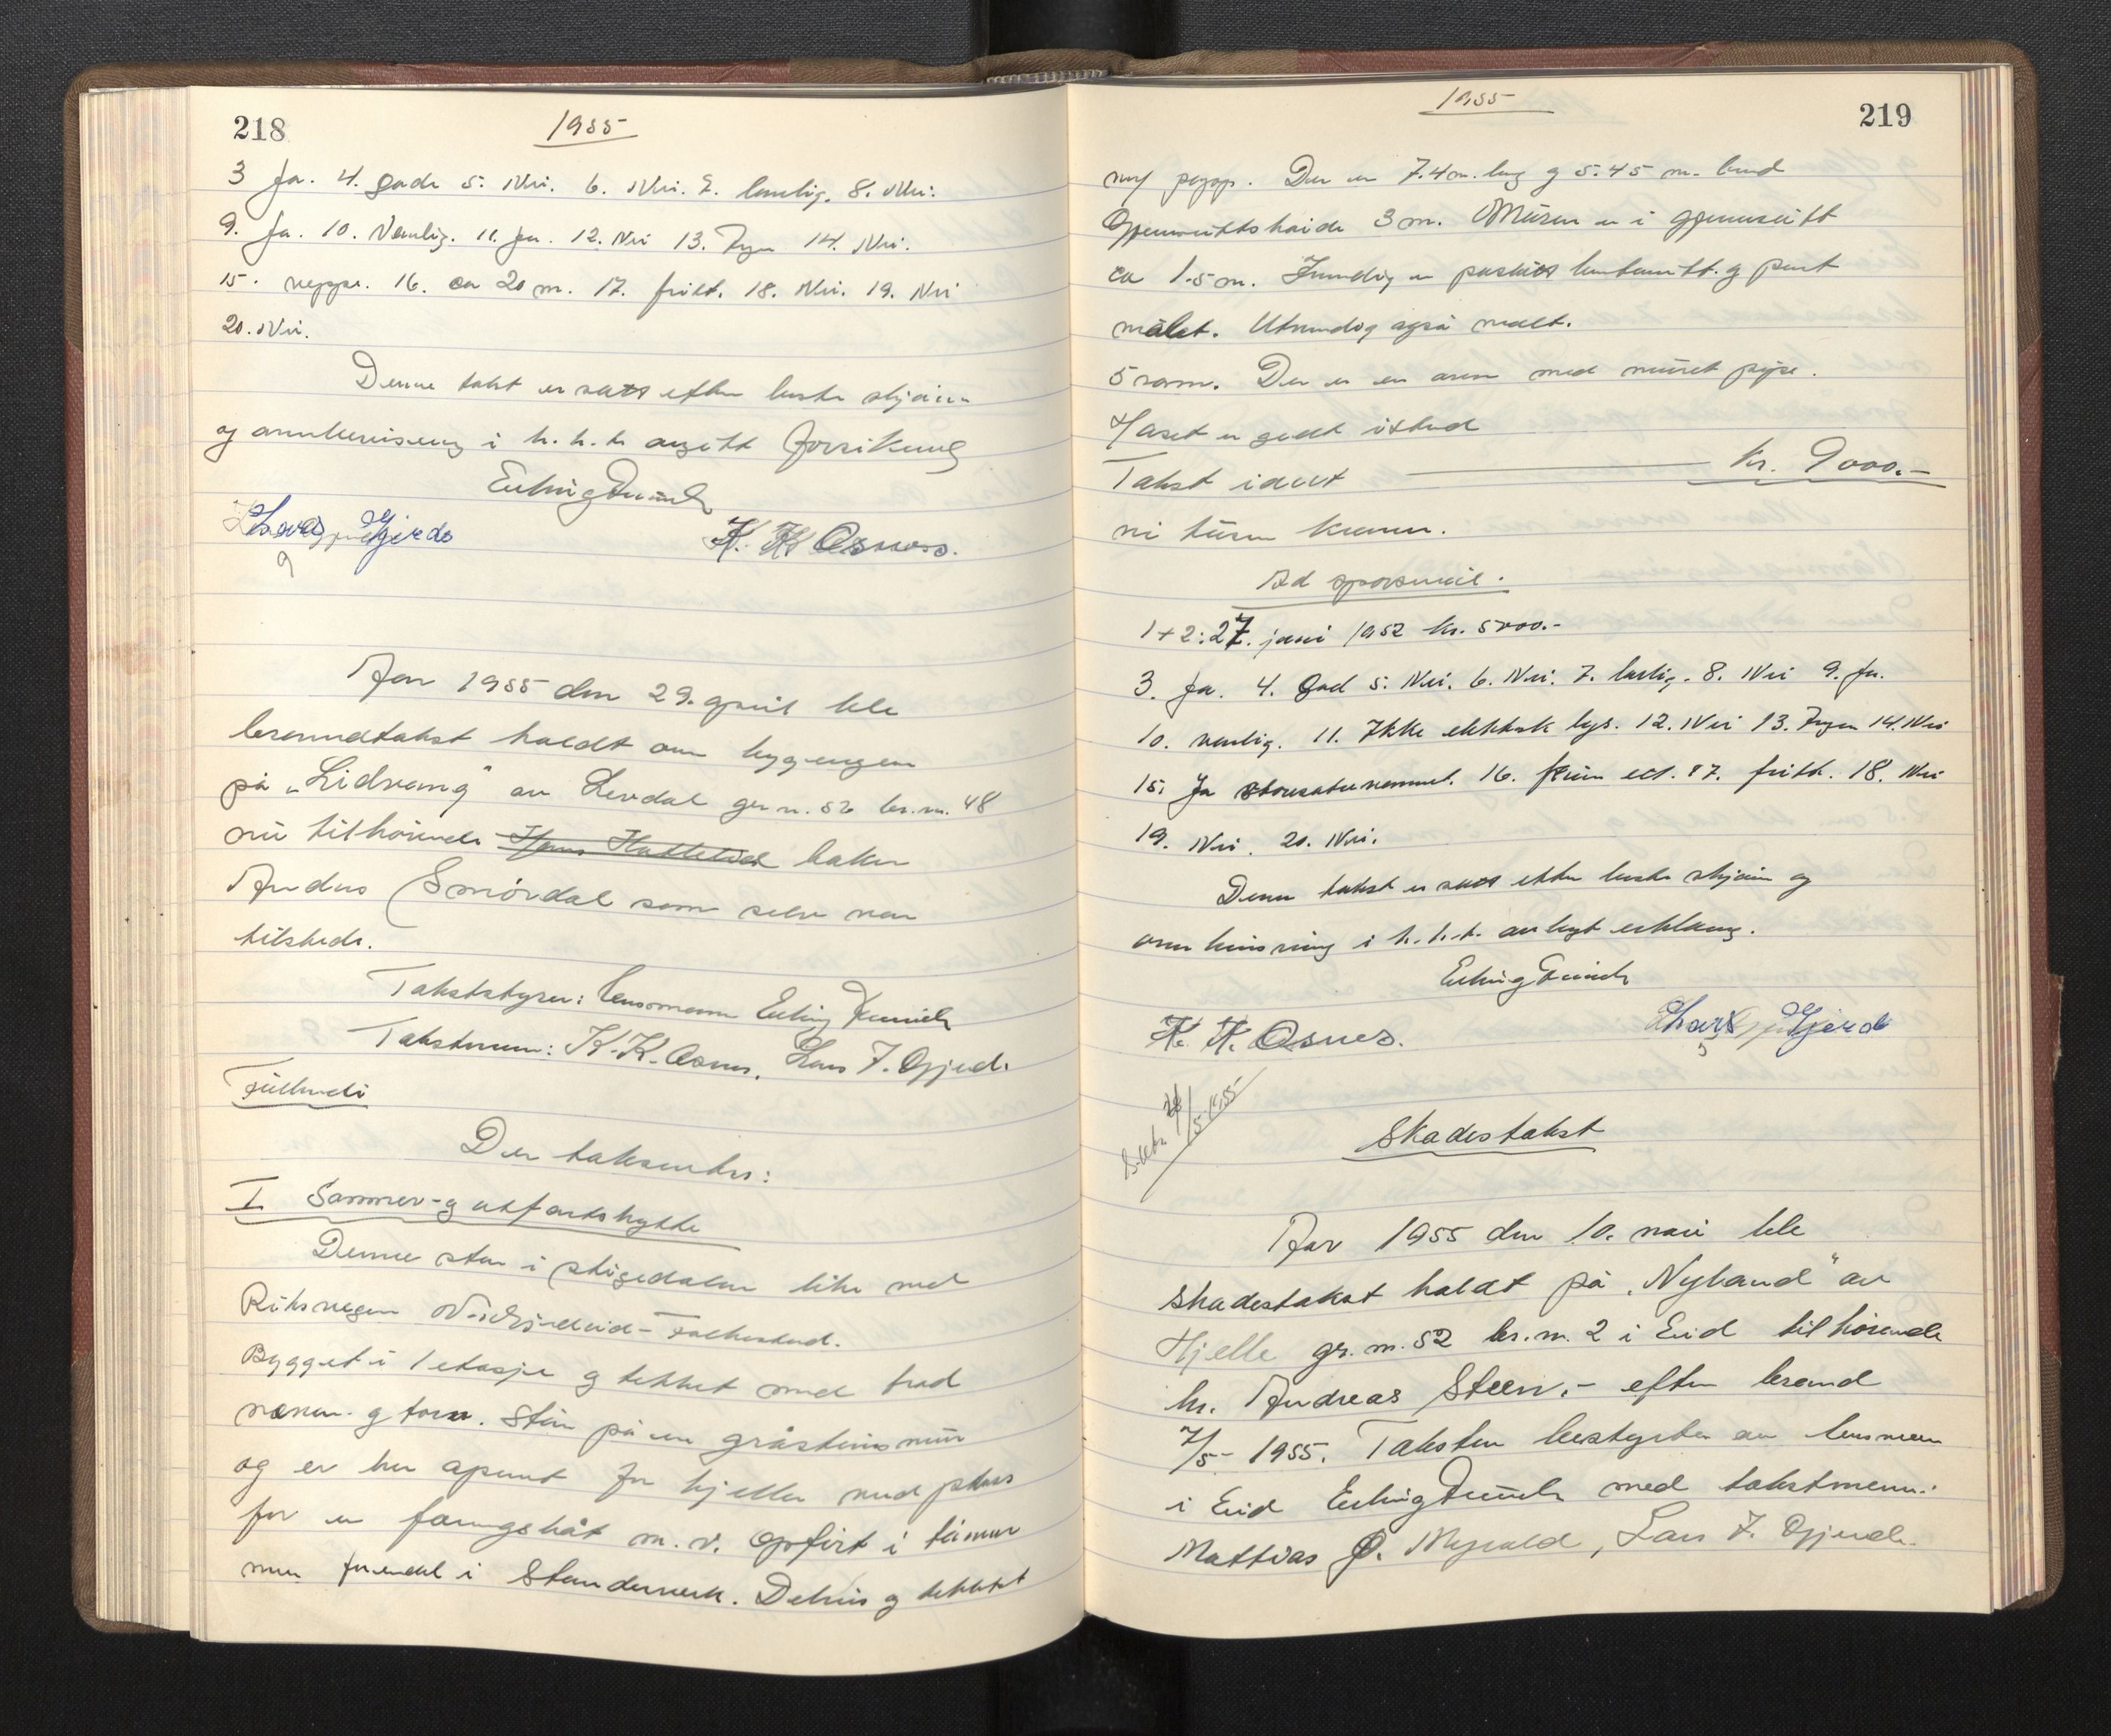 218
1955
3 Ja. 4. gode 5. Nei. 6. Nei. 7. lovlig. 8. Nei.
9. Ja. 10. Vanlig. 11. Ja. 12. Nei 13. Ingen 14. Nei.
15. neppe. 16. ca 20 m. 17. fritt. 18. Nei. 19. Nei
20. Nei.
Denne takst er satt efter beste skjønn
og overbevisning i h. h. t. avgitt forsikring
Erling
Lars Gjerde
K. K. Osnes.
Aar 1955 den 29. april ble
branndtakst holdt over bygningen
på „Lidvang" av Levdal gr.n. 52 br.n. 48
nu tilhørende baker
Anders Smørdal som selv var
tilstede.
Takststyrer: lensmann Erling
Takstmenn: K. K. Osnes, Lars J. Gjerde.
Der takseres:
I Sommer- og utfartshytte
Denne står i stigedalen like ved
Riksvegen Nordfjordeid - Folkestad.
Bygget i 1 etasje og tekket med trod
never og torv. Står på en gråsteins mur
og er her apent for kjeller med plass
for en færingsbåt m. v. Opført i tømmer
men for en del i Standerverk. Delvis og tekket
1955
219
m/ papp. Den er 7.4 m. lang og 5.45 m. bred
Gjennomsnittshøide 3 m. Muren er i gjennomsnitt
ca 1.5 m. Innvendig er pent
målet. Utvendig også malt.
5 rom. Der er en aren med muret pipe.
Huset er godt istand
Takst idevt kr. 9000.-
ni tusen kroner.
Ad spørsmål.
1+2: 27. juni 1952 kr. 5000.-
3. Ja. 4. God 5. Nei. 6. Nei. 7. lovlig. 8. Nei 9. Ja.
10. vanlig. 11. Ikke elektrisk lys. 12. Nei 13. Ingen 14. Nei
15. Ja 16. ect. 17. fritt. 18. Nei
19. Nei. 20. Nei.
Denne takst er satt efter beste skjønn og
overbevisning i h. h. t. avlagt erklæring.
Erling
K. K. Osnes.
Lars Gjerde
Skadestakst
Aar 1955 den 10. mai ble
skadestakst holdt på „Nyland" av
Hjelle gr. n. 52 br. n. 2 i Eid tilhørende
hr. Andreas Steen. - efter brand
7/5- 1955. Taksten bestyrtes av lensmann
i Eid Erling med takstmenn:
Mattias O. Myrold, Lars J. Gjerde.